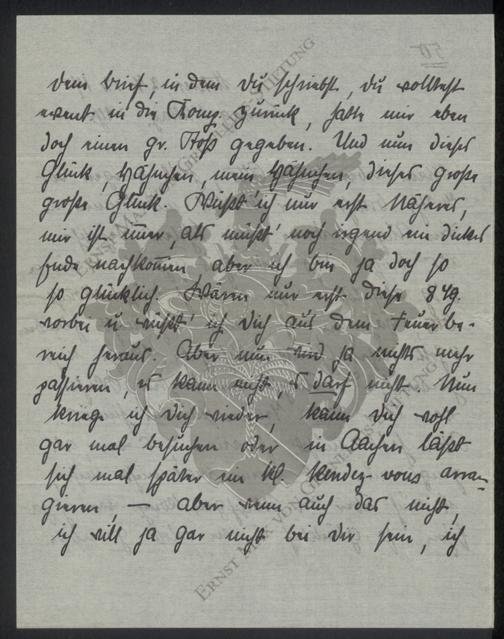 dem brief, in dem Du schriebst, Du wolltest
event. in die Komp. zurück, hatte mir eben
doch einen gr. Stoß gegeben. Und nun dieses
Glück, mein dieses große
große Glück. Wüßt' ich nur erst Näheres,
mir ist immer, als müßt' noch irgend ein dickes
Ende nachkommen, aber ich bin ja doch so
so glücklich. Wären nur erst diese 8 Tg.
vorbei u. wüßt' ich Dich aus dem Feuerbe-
reich heraus. Aber nun wird ja nichts mehr
passieren, es kann nicht, es darf nicht. Nun
kriege ich Dich wieder, kann Dich wohl
gar mal besuchen oder in Aachen läßt
sich mal später ein kl. Rendez-vous arran-
gieren — aber wenn auch das nicht,
ich will ja gar nicht bei Dir sein, ich
ERNST MAX VON GRUNELIUS-STIFTUNG